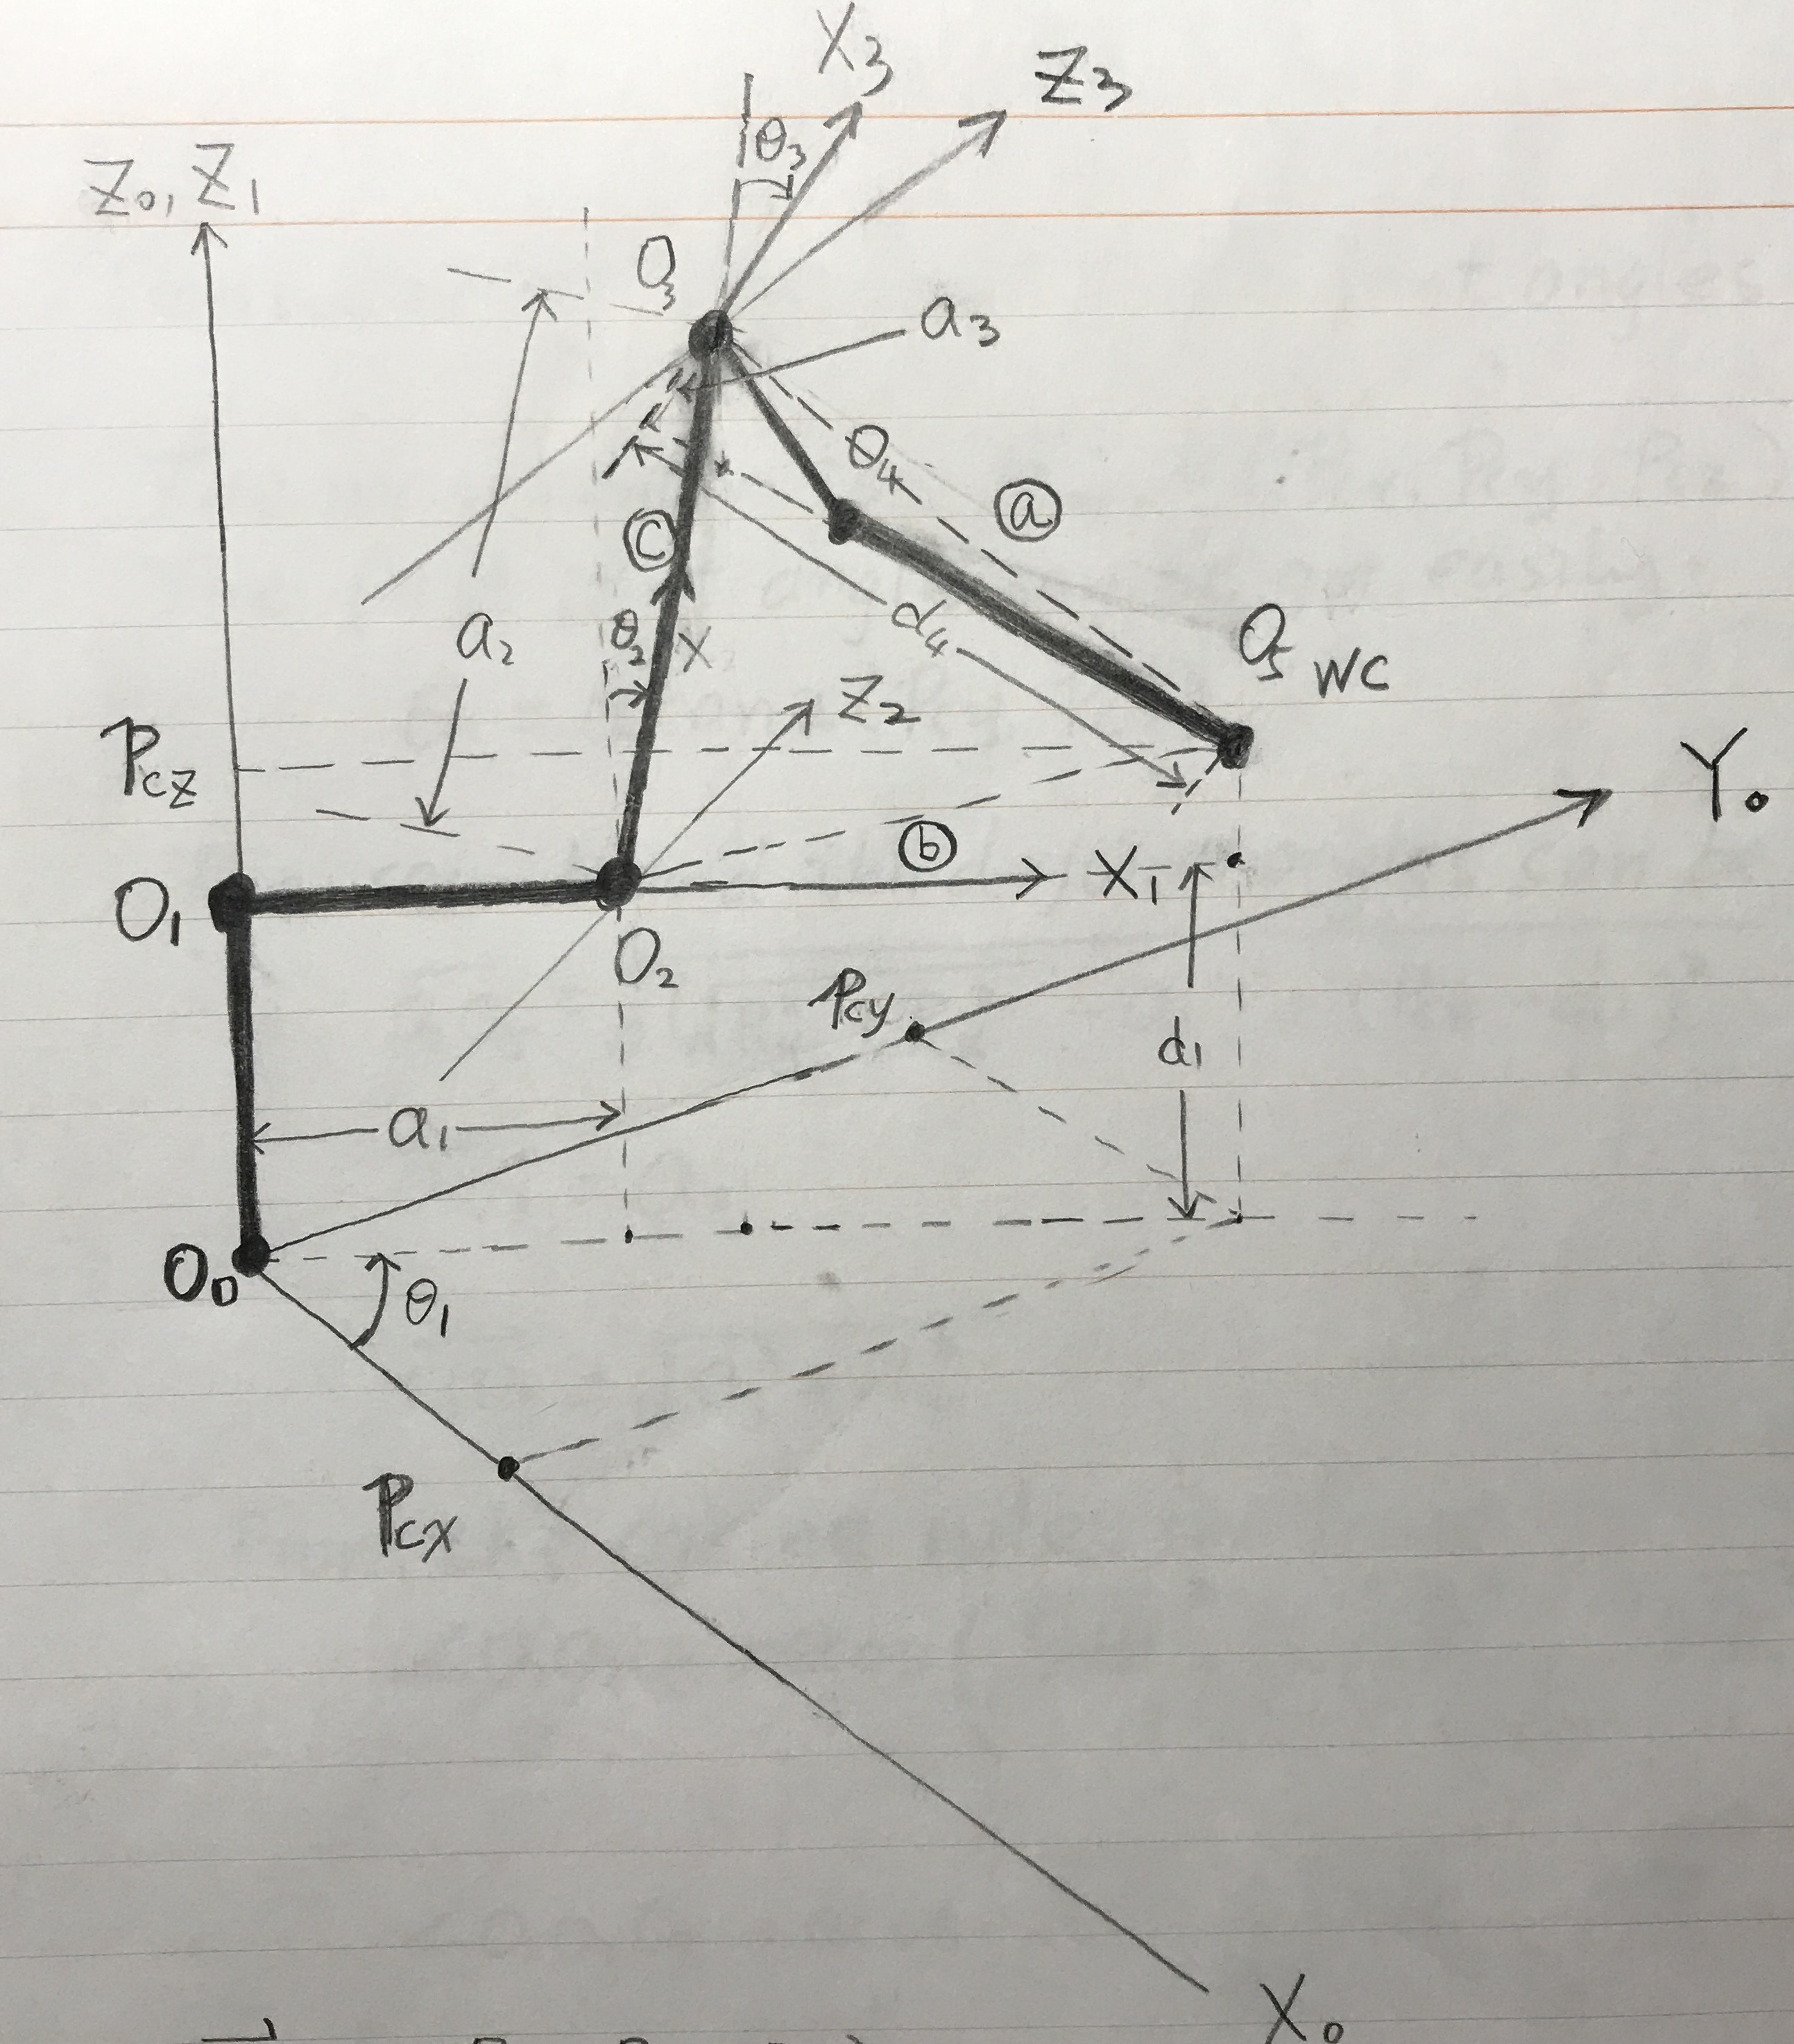 X₃
Z₃
θ₃
Z₀, Z₁
O₃
a₃
θ₄
ⓐ
ⓒ
d₄
a₂
θ₂
X
O₅ WC
Z₂
Pcz
Y₀
ⓑ
X₁
O₁
O₂
Pcy
d₁
a₁
O₀
θ₁
Pcx
X₀